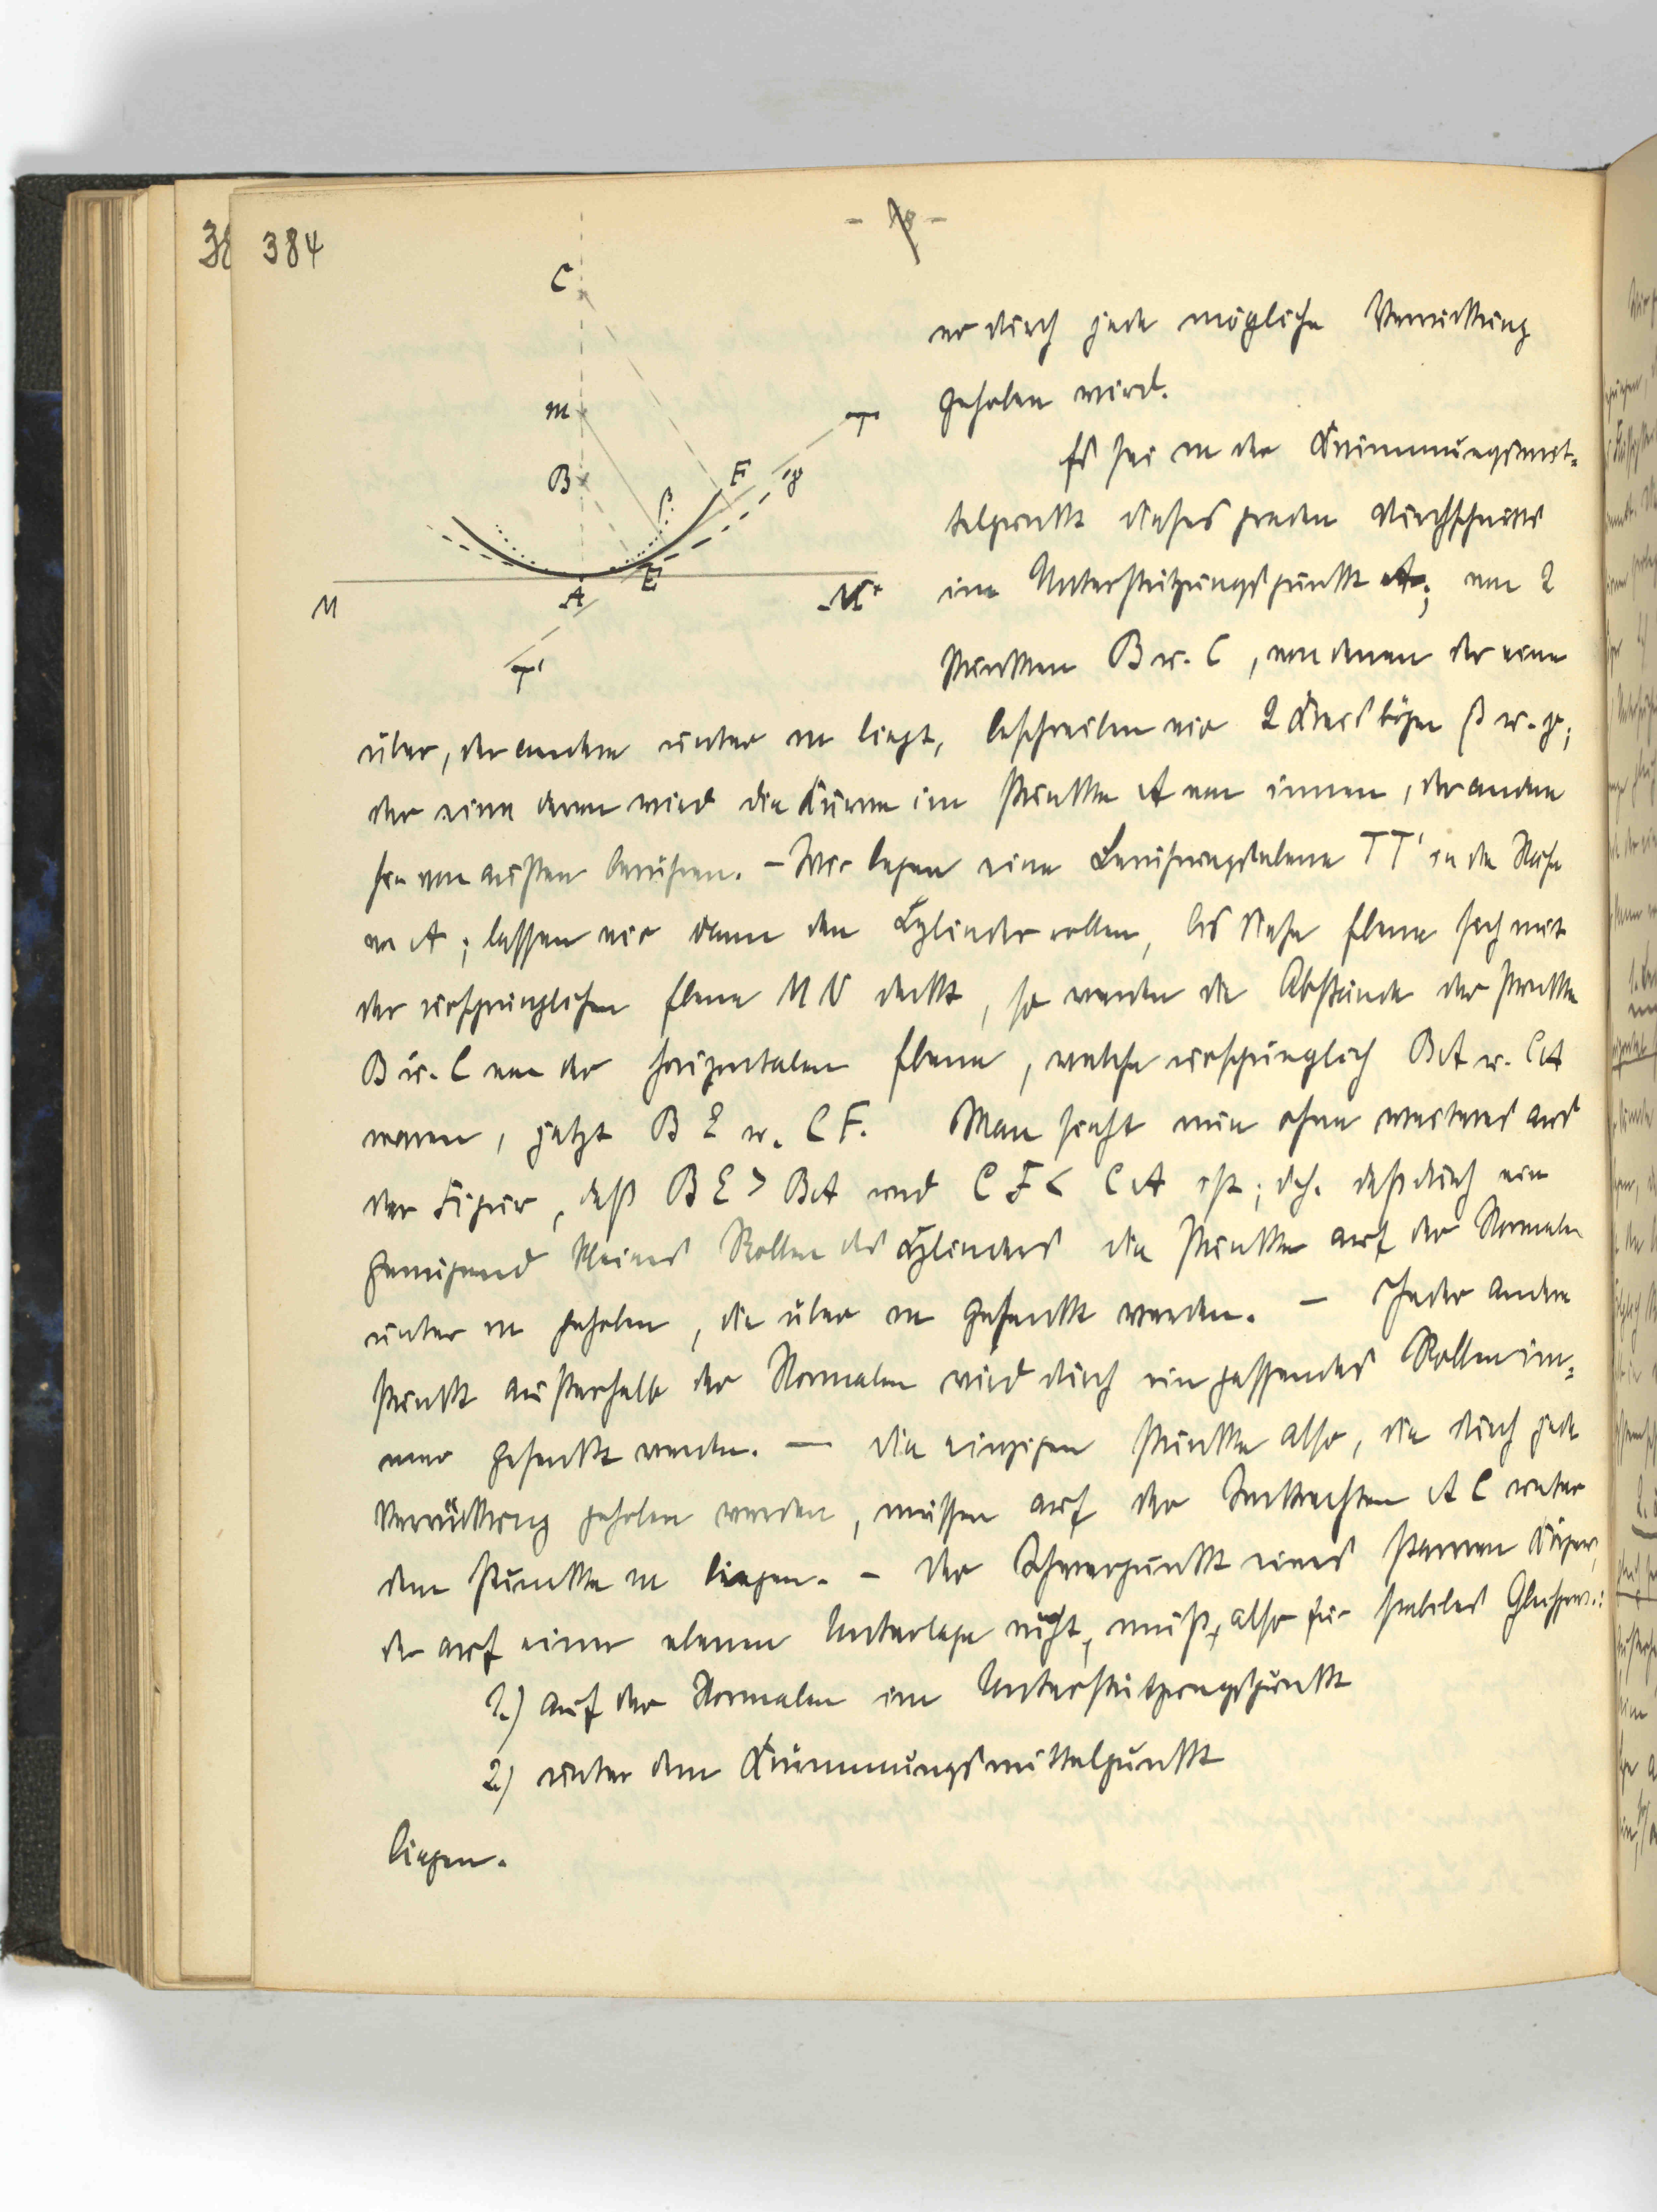 384
C
m
B
A
E
F
β
γ
T
T'
M
N
er durch jede mögliche Verrückung
gehoben wird.
Es sei m der Krümmungsmit-
telpunkt dieses graden Durchschnitts
im Unterstützungspunkt A; von 2
Punkten B u. C, von denen der eine
über, der andere unter m liegt, beschreiben wir 2 Kreisbögen β u. γ;
der eine derer wird die Curve im Punkte A von innen, der andere
sie von außen berühren. – Wir legen eine Berührungsebene TT' in der Nähe
von A; lassen wir dann den Cylinder rollen, bis diese Ebene sich mit
der ursprünglichen Ebene MN deckt, so werden die Abstände der Punkte
B u. C von der horizontalen Ebene, welche ursprünglich BA u. CA
waren, jetzt BE u. CF. Man sieht nun ohne weiteres aus
der Figur, daß BE > BA und CF < CA ist; d.h. daß durch ein
genügend kleines Rollen des Cylinders die Punkte auf der Normalen
unter m gehoben, die über m gesenkt werden. – Jeder andere
Punkt außerhalb der Normalen wird durch ein passendes Rollen im-
mer gesenkt werden. — die einzigen Punkte also, die durch jede
Verrückung gehoben werden, müssen auf der Senkrechten AC unter
dem Punkte m liegen. – Der Schwerpunkt eines starren Körpers,
der auf einer ebenen Unterlage ruht, muß, also für stabiles Gleichgew.:
1.) auf der Normalen im Unterstützungspunkt
2.) unter dem Krümmungsmittelpunkt
liegen.